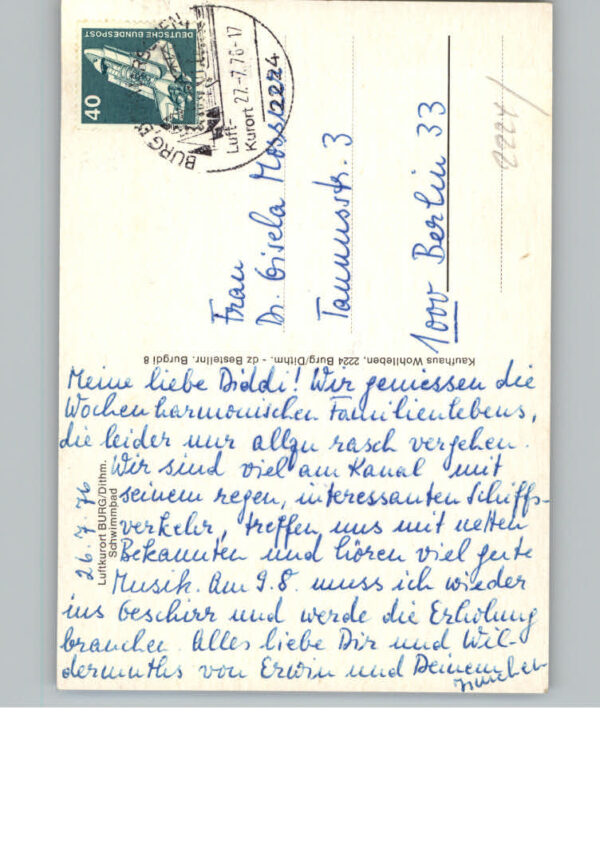 DEUTSCHE BUNDESPOST
40
BURG
Luft-
Kurort 27.-7.76-17
2224
2224/
Frau
Dr. Gisela
Taunusstr. 3
1000 Berlin 33
Kaufhaus Wohlleben, 2224 Burg/Dithm. - dz Bestellnr. Burgdl 8
Luftkurort BURG/Dithm.
Schwimmbad
26.7.76
Meine liebe Diddi! Wir geniessen die
Wochen harmonischen Familienlebens,
die leider nur allzu rasch vergehen.
Wir sind viel am Kanal mit
seinem regen, interessanten Schiffs-
verkehr, treffen uns mit netten
Bekannten und hören viel gute
Musik. Am 9.8. muss ich wieder
ins Geschirr und werde die Erholung
brauchen. Alles liebe Dir und Wil-
dermuths von Erwin und Deinem